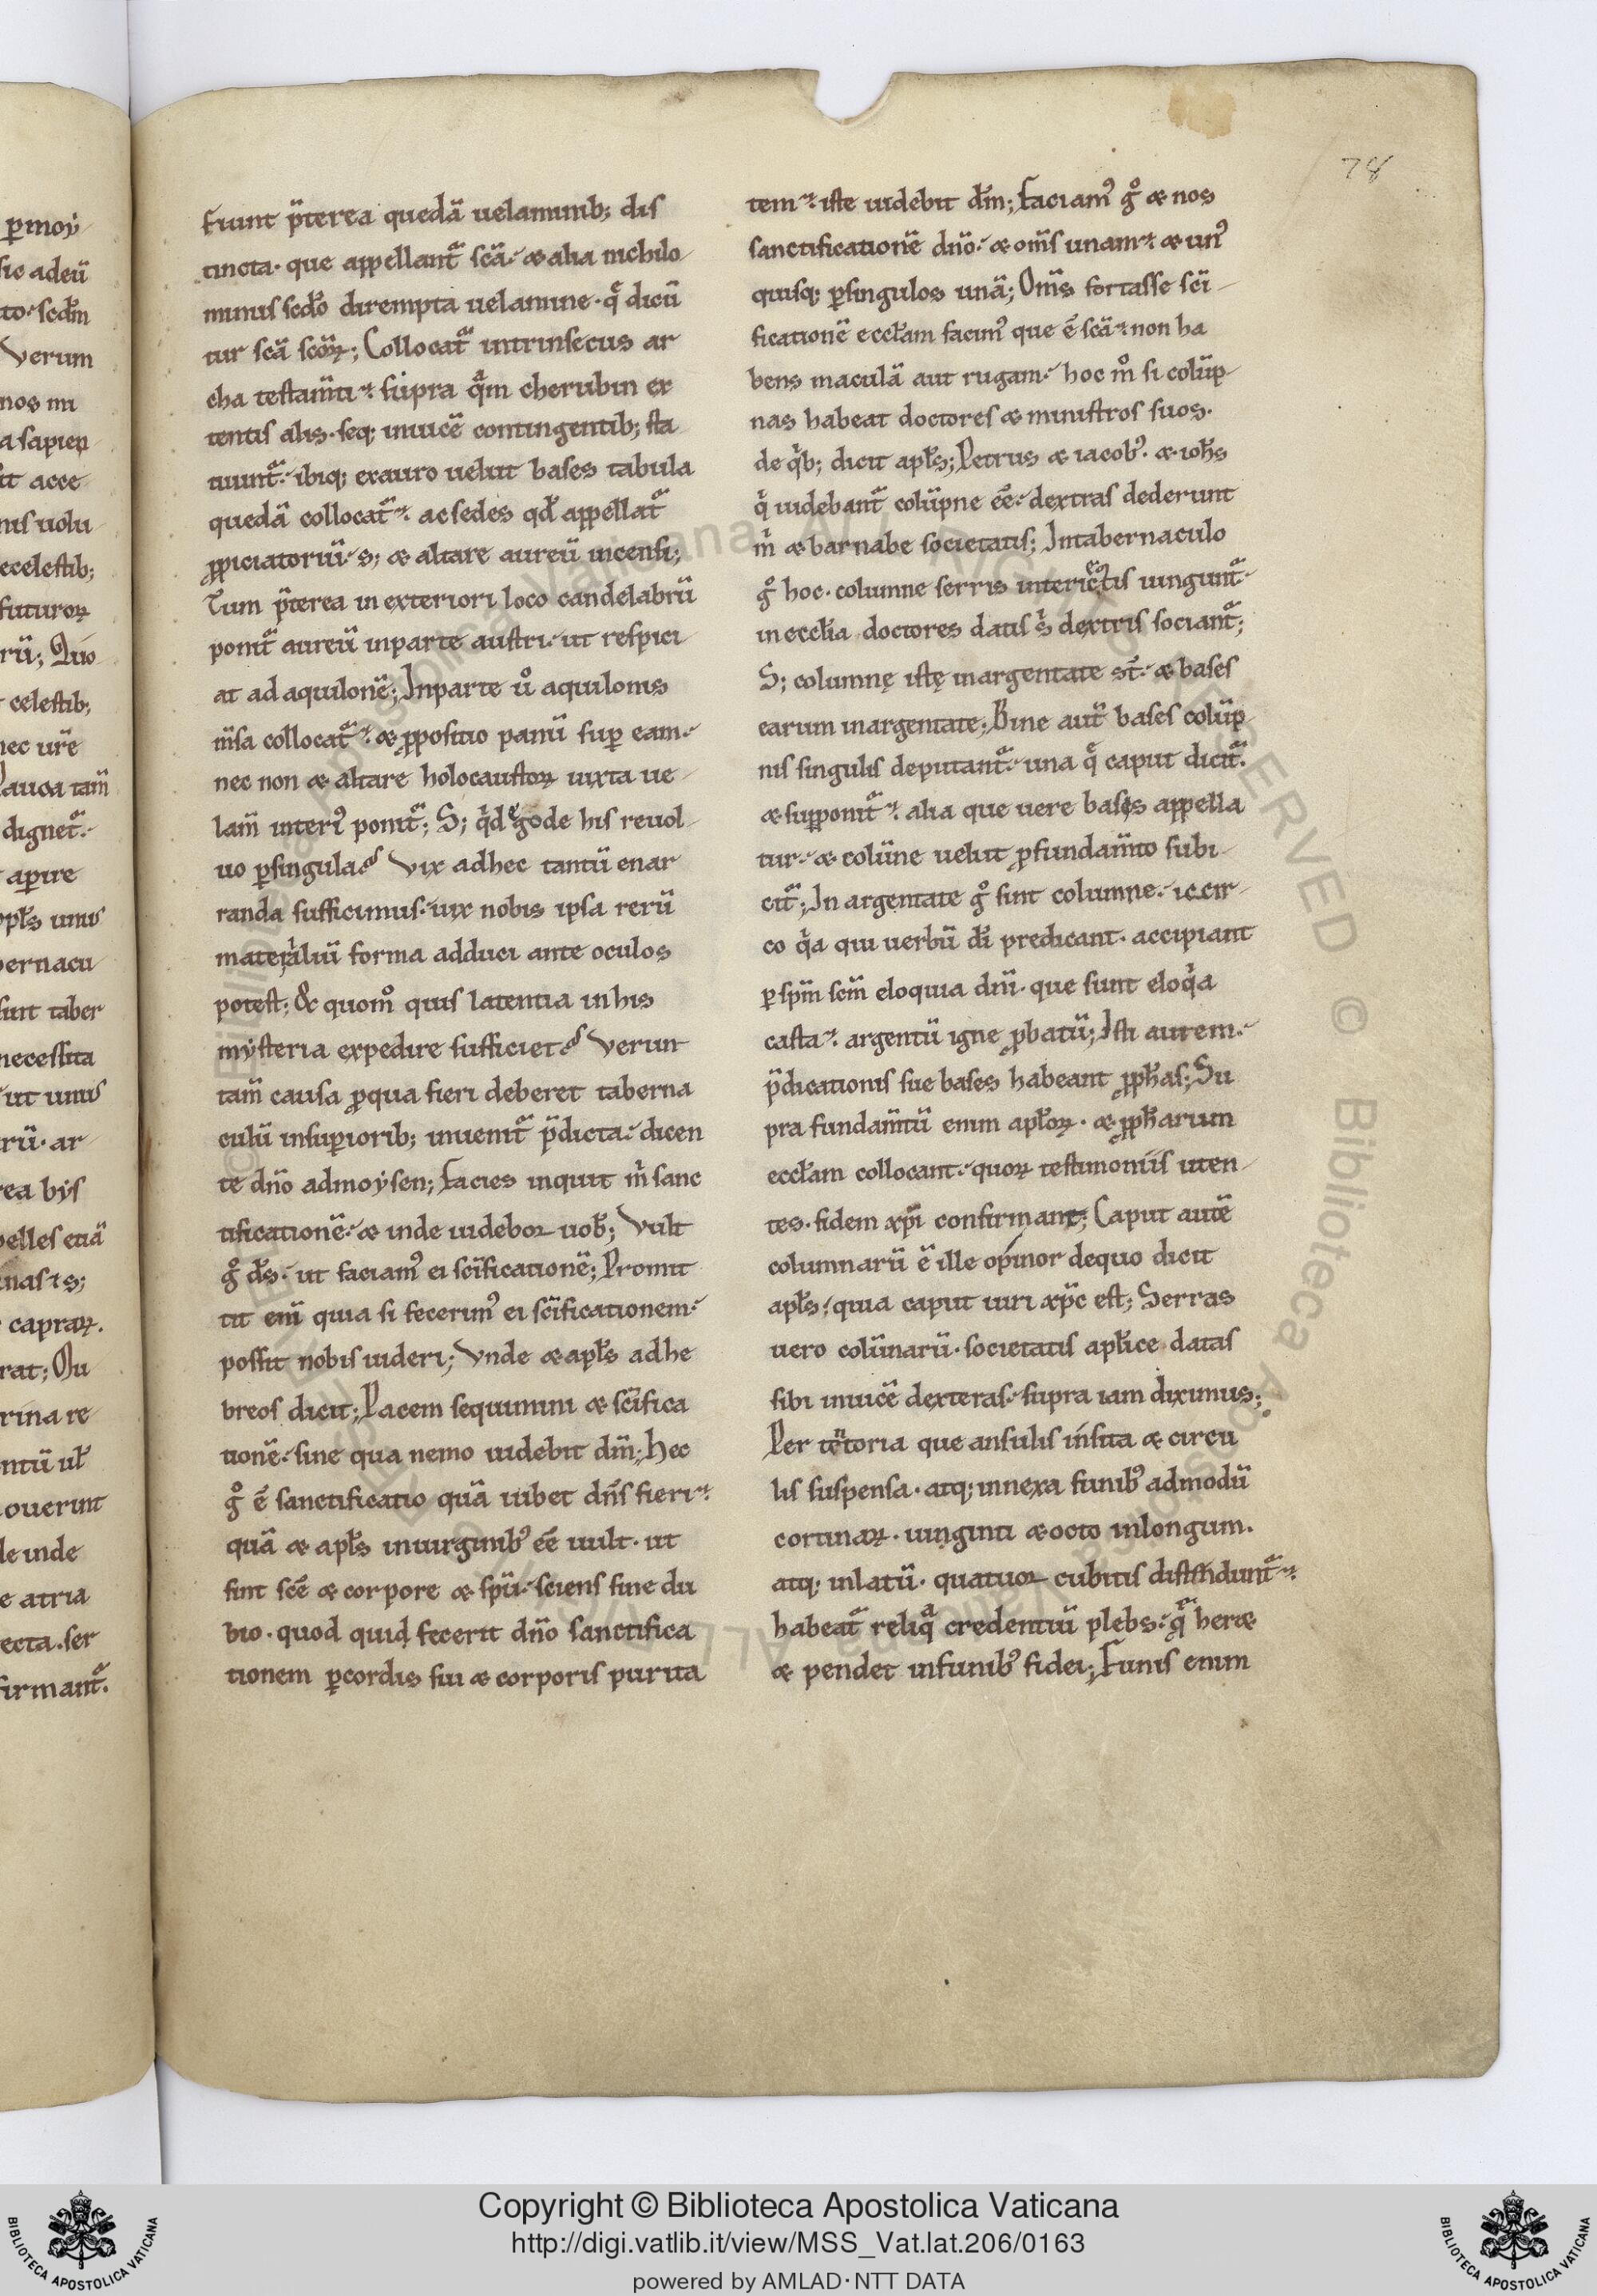 Fiunt p̄terea quedā uelaminib; dis
tincta· que appellant᷑ scā· & alia nichilo
minus scdo dirempta uelamine· q̄ dicū
tur scā scōꝝ; Collocat᷑ intrinsecus ar
cha testam̄ti· supra q̄m cherubin ex
tentis alis· seq; inuicē contingentib; sta
tuunt᷑· ibiq; exauro uelut bases tabula
quedā collocat᷑· ac sedes qd̄ appellat᷑
ꝓpiciatoriū· s; & altare aureū incensi;
Tum p̄terea in exteriori loco candelabrū
ponit᷑ aureū inparte austri· ut respici
at ad aquilonē; Inparte ů aquilonis
m̄sa collocat᷑· & ꝓpositio panū suꝑ eam·
nec non & altare holocaustoꝝ iuxta ue
lam̄ interi᷒ ponit᷑; S; q̇d ego de his reuol
uo ꝑsingula? Vix adhec tantū enar
randa sufficimus· uix nobis ipsa rerū
materialiū forma adduci ante oculos
potest; & quom̊ quis latentia inhis
mysteria expedire sufficiet? Verun
tam̄ causa ꝓqua fieri deberet taberna
culū insuꝑiorib; inuenit᷑ p̄dicta· dicen
te dn̄o admoysen; Facies inquit ṁ sanc
tificationē· & inde uidebor uob̄; Vult
g̊ d̄s· ut faciam᷒ ei sc̄ificationē; Promit
tit eni̅ quia si fecerim᷒ ei sc̄ificationem·
possit nobis uideri; Vnde & apl̄s adhe
breos dicit; Pacem sequimini & sc̄ifica
tionē· sine qua nemo uidebit dm̄; Hec
g̊ ē sanctificatio quā iubet dn̄s fieri·
quā & apl̄s inuirginib᷒ eē uult· ut
sint scē & corpore & spū· sciens sine du
bio· quod quid fecerit dn̄o sanctifica
tionem ꝑcordis sui & corporis purita
78
tem· iste uidebit dm̄; Faciam᷒ g̊ & nos
sanctificationē dn̄o· & om̄s unam· & un᷒
quisq; ꝑsingulos unā; Om̄s fortasse sc̄i
ficationē eccl̄am facim᷒ que ē scā· non ha
bens maculā aut rugam· hoc m̊ si colūp
nas habeat doctores & ministros suos·
de q̇b; dicit apl̄s; Petrus & iacob᷒· & ioh̄s
q̇ uidebant᷑ colūpne eē· dextras dederunt
ṁ & barnabe societatis; Intabernaculo
g̊ hoc· columne serris interiectis iungunt᷑·
in eccl̄ia doctores datis ṡ dextris sociant᷑;
S; columnę istę inargentate st̄· & bases
earum inargentate; Bine aut̄ bases colūp
nis singulis deputant᷑· una q̄ caput dicit᷑·
& supponit᷑· alia que uere bases appella
tur· & colūne uelut ꝓfundam̄to subi
cit᷑; In argentate g̊ sint columne· iccir
co q̇a qui uerbū dī predicant· accipiant
ꝑ spm̄ scm̄ eloquia dni̅· que sunt eloq̇a
casta· argentū igne ꝓbatū; Isti autem·
p̄dicationis sue bases habeant ꝓph̄as; Su
pra fundam̄tū enim apl̄oꝝ· & ꝓph̄arum
eccl̄am collocant· quoꝝ testimoniis uten
tes· fidem xpi̅ confirmant; Caput autē
columnarū ē ille opinor dequo dicit
apl̄s· quia caput uiri xp̄c est; Serras
uero colūnarū· societatis apl̄ice datas
sibi inuicē dexteras· supra iam diximus;
Per tētoria que ansulis insita & circu
lis suspensa· atq; innexa funib᷒ admodū
cortinaꝝ· uinginti & octo inlongum·
atq; inlatū· quatuor cubitis distendunt᷑·
habeat᷑ reliq̄ credentiū plebs· q̄ heret
& pendet infunib᷒ fidei; Funis enim
Copyright © Biblioteca Apostolica Vaticana
http://digi.vatlib.it/view/MSS_Vat.lat.206/0163
powered by AMLAD·NTT DATA
BIBLIOTECA APOSTOLICA VATICANA
BIBLIOTECA APOSTOLICA VATICANA